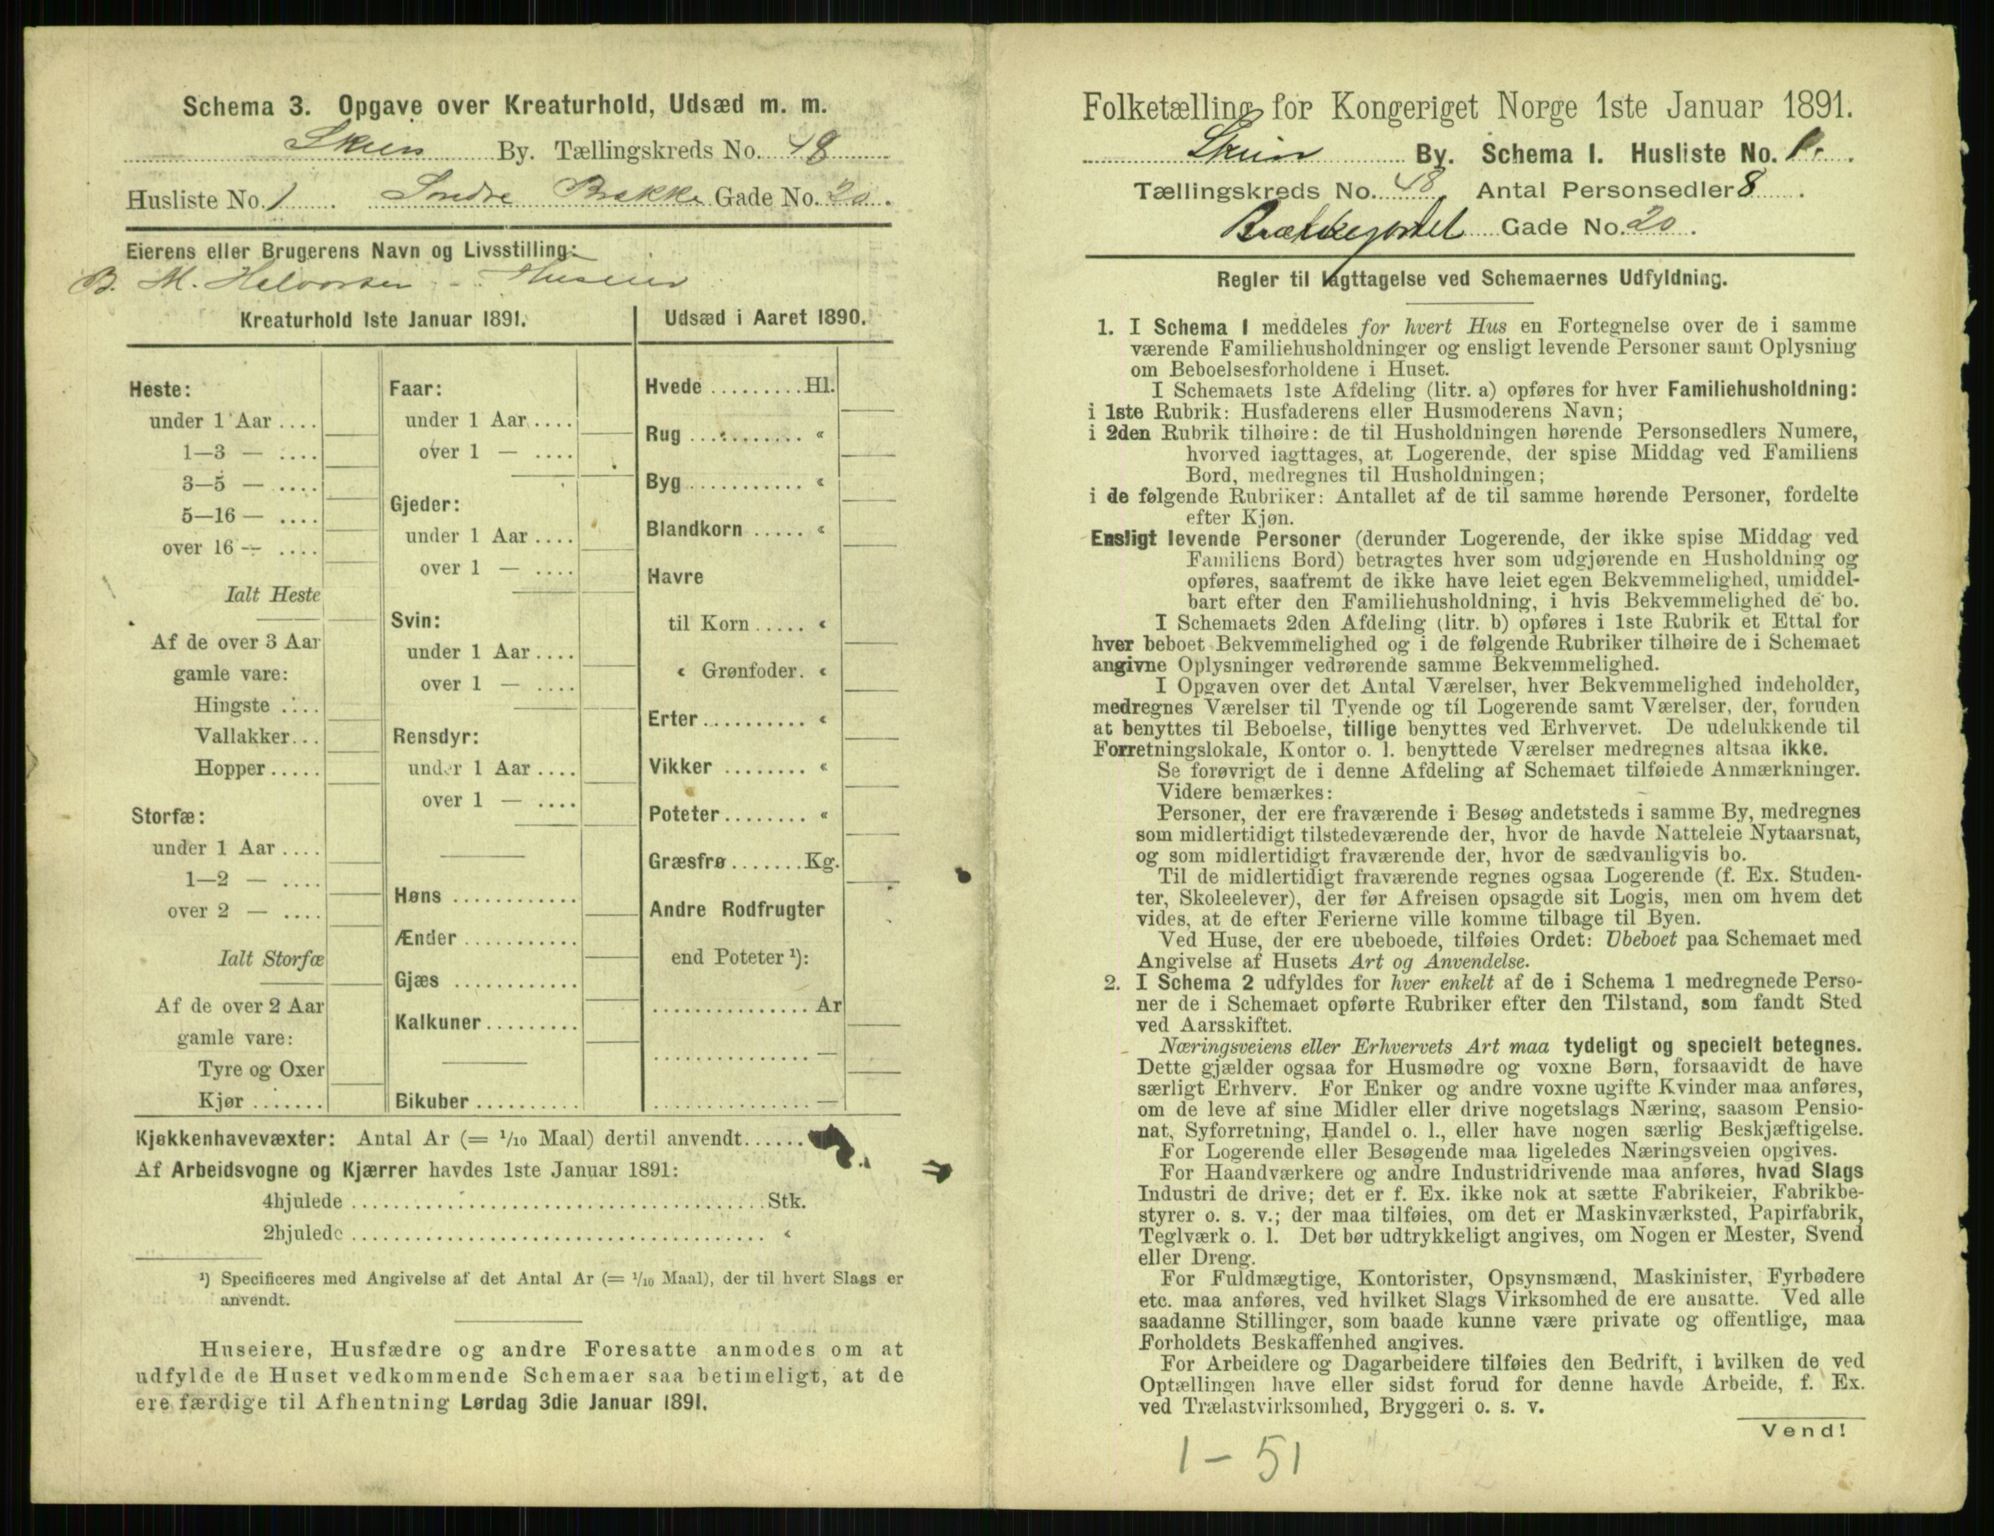 Schema 3. Opgave over Kreaturhold, Udsæd m. m.
Skien By. Tællingskreds No. 48
Husliste No. 1 Søndre Brække Gade No. 20.
Eierens eller Brugerens Navn og Livsstilling:
B. M. Halvorsen - Huseier
Kreaturhold 1ste Januar 1891.
Udsæd i Aaret 1890.
Heste:
under 1 Aar ....
1—3 — ....
3—5 — ....
5—16 — ....
over 16 — ....
Ialt Heste
Af de over 3 Aar
gamle vare:
Hingste ....
Vallakker...
Hopper.....
Storfæ:
under 1 Aar ....
1—2 — ....
over 2 — ....
Ialt Storfæ
Af de over 2 Aar
gamle vare:
Tyre og Oxer
Kjør .......
Faar:
under 1 Aar....
over 1 — ....
Gjeder:
under 1 Aar....
over 1 — ....
Svin:
under 1 Aar....
over 1 — ....
Rensdyr:
under 1 Aar....
over 1 — ....
Høns ............
Ænder...........
Gjæs ............
Kalkuner.........
Bikuber..........
Hvede .........Hl.
Rug .......... «
Byg............ «
Blandkorn ..... «
Havre
til Korn..... «
« Grønfoder. «
Erter.......... «
Vikker ........ «
Poteter........ «
Græsfrø.......Kg.
Andre Rodfrugter
end Poteter ¹):
............... Ar
............... —
............... —
Kjøkkenhavevæxter: Antal Ar (= 1/10 Maal) dertil anvendt......
Af Arbeidsvogne og Kjærrer havdes 1ste Januar 1891:
4hjulede ....................................Stk.
2hjulede .................................... «
¹) Specificeres med Angivelse af det Antal Ar (= 1/10 Maal), der til hvert Slags er
anvendt.
Huseiere, Husfædre og andre Foresatte anmodes om at
udfylde de Huset vedkommende Schemaer saa betimeligt, at de
ere færdige til Afhentning Lørdag 3die Januar 1891.
Folketælling for Kongeriget Norge 1ste Januar 1891.
Skien By. Schema 1. Husliste No. 1.
Tællingskreds No. 48 Antal Personsedler 8
Brækkejordet Gade No. 20.
Regler til Iagttagelse ved Schemaernes Udfyldning.
1. I Schema 1 meddeles for hvert Hus en Fortegnelse over de i samme
værende Familiehusholdninger og ensligt levende Personer samt Oplysning
om Beboelsesforholdene i Huset.
I Schemaets 1ste Afdeling (litr. a) opføres for hver Familiehusholdning:
i 1ste Rubrik: Husfaderens eller Husmoderens Navn;
i 2den Rubrik tilhøire: de til Husholdningen hørende Personsedlers Numere,
hvorved iagttages, at Logerende, der spise Middag ved Familiens
Bord, medregnes til Husholdningen;
i de følgende Rubriker: Antallet af de til samme hørende Personer, fordelte
efter Kjøn.
Ensligt levende Personer (derunder Logerende, der ikke spise Middag ved
Familiens Bord) betragtes hver som udgjørende en Husholdning og
opføres, saafremt de ikke have leiet egen Bekvemmelighed, umiddel-
bart efter den Familiehusholdning, i hvis Bekvemmelighed de bo.
I Schemaets 2den Afdeling (litr. b) opføres i 1ste Rubrik et Ettal for
hver beboet Bekvemmelighed og i de følgende Rubriker tilhøire de i Schemaet
angivne Oplysninger vedrørende samme Bekvemmelighed.
I Opgaven over det Antal Værelser, hver Bekvemmelighed indeholder,
medregnes Værelser til Tyende og til Logerende samt Værelser, der, foruden
at benyttes til Beboelse, tillige benyttes ved Erhvervet. De udelukkende til
Forretningslokale, Kontor o. l. benyttede Værelser medregnes altsaa ikke.
Se forøvrigt de i denne Afdeling af Schemaet tilføiede Anmærkninger.
Videre bemærkes:
Personer, der ere fraværende i Besøg andetsteds i samme By, medregnes
som midlertidigt tilstedeværende der, hvor de havde Natteleie Nytaarsnat,
og som midlertidigt fraværende der, hvor de sædvanligvis bo.
Til de midlertidigt fraværende regnes ogsaa Logerende (f. Ex. Studen-
ter, Skoleelever), der før Afreisen opsagde sit Logis, men om hvem det
vides, at de efter Ferierne ville komme tilbage til Byen.
Ved Huse, der ere ubeboede, tilføies Ordet: Ubeboet paa Schemaet med
Angivelse af Husets Art og Anvendelse.
2. I Schema 2 udfyldes for hver enkelt af de i Schema 1 medregnede Perso-
ner de i Schemaet opførte Rubriker efter den Tilstand, som fandt Sted
ved Aarsskiftet.
Næringsveiens eller Erhvervets Art maa tydeligt og specielt betegnes.
Dette gjælder ogsaa for Husmødre og voxne Børn, forsaavidt de have
særligt Erhverv. For Enker og andre voxne ugifte Kvinder maa anføres,
om de leve af sine Midler eller drive nogetslags Næring, saasom Pensio-
nat, Syforretning, Handel o. l., eller have nogen særlig Beskjæftigelse.
For Logerende eller Besøgende maa ligeledes Næringsveien opgives.
For Haandværkere og andre Industridrivende maa anføres, hvad Slags
Industri de drive; det er f. Ex. ikke nok at sætte Fabrikeier, Fabrikbe-
styrer o. s. v.; der maa tilføies, om det er Maskinværksted, Papirfabrik,
Teglværk o. l. Det bør udtrykkeligt angives, om Nogen er Mester, Svend
eller Dreng.
For Fuldmægtige, Kontorister, Opsynsmænd, Maskinister, Fyrbødere
etc. maa anføres, ved hvilket Slags Virksomhed de ere ansatte. Ved alle
saadanne Stillinger, som baade kunne være private og offentlige, maa
Forholdets Beskaffenhed angives.
For Arbeidere og Dagarbeidere tilføies den Bedrift, i hvilken de ved
Optællingen have eller sidst forud for denne havde Arbeide, f. Ex.
ved Trælastvirksomhed, Bryggeri o. s. v.
Vend!
1 - 51